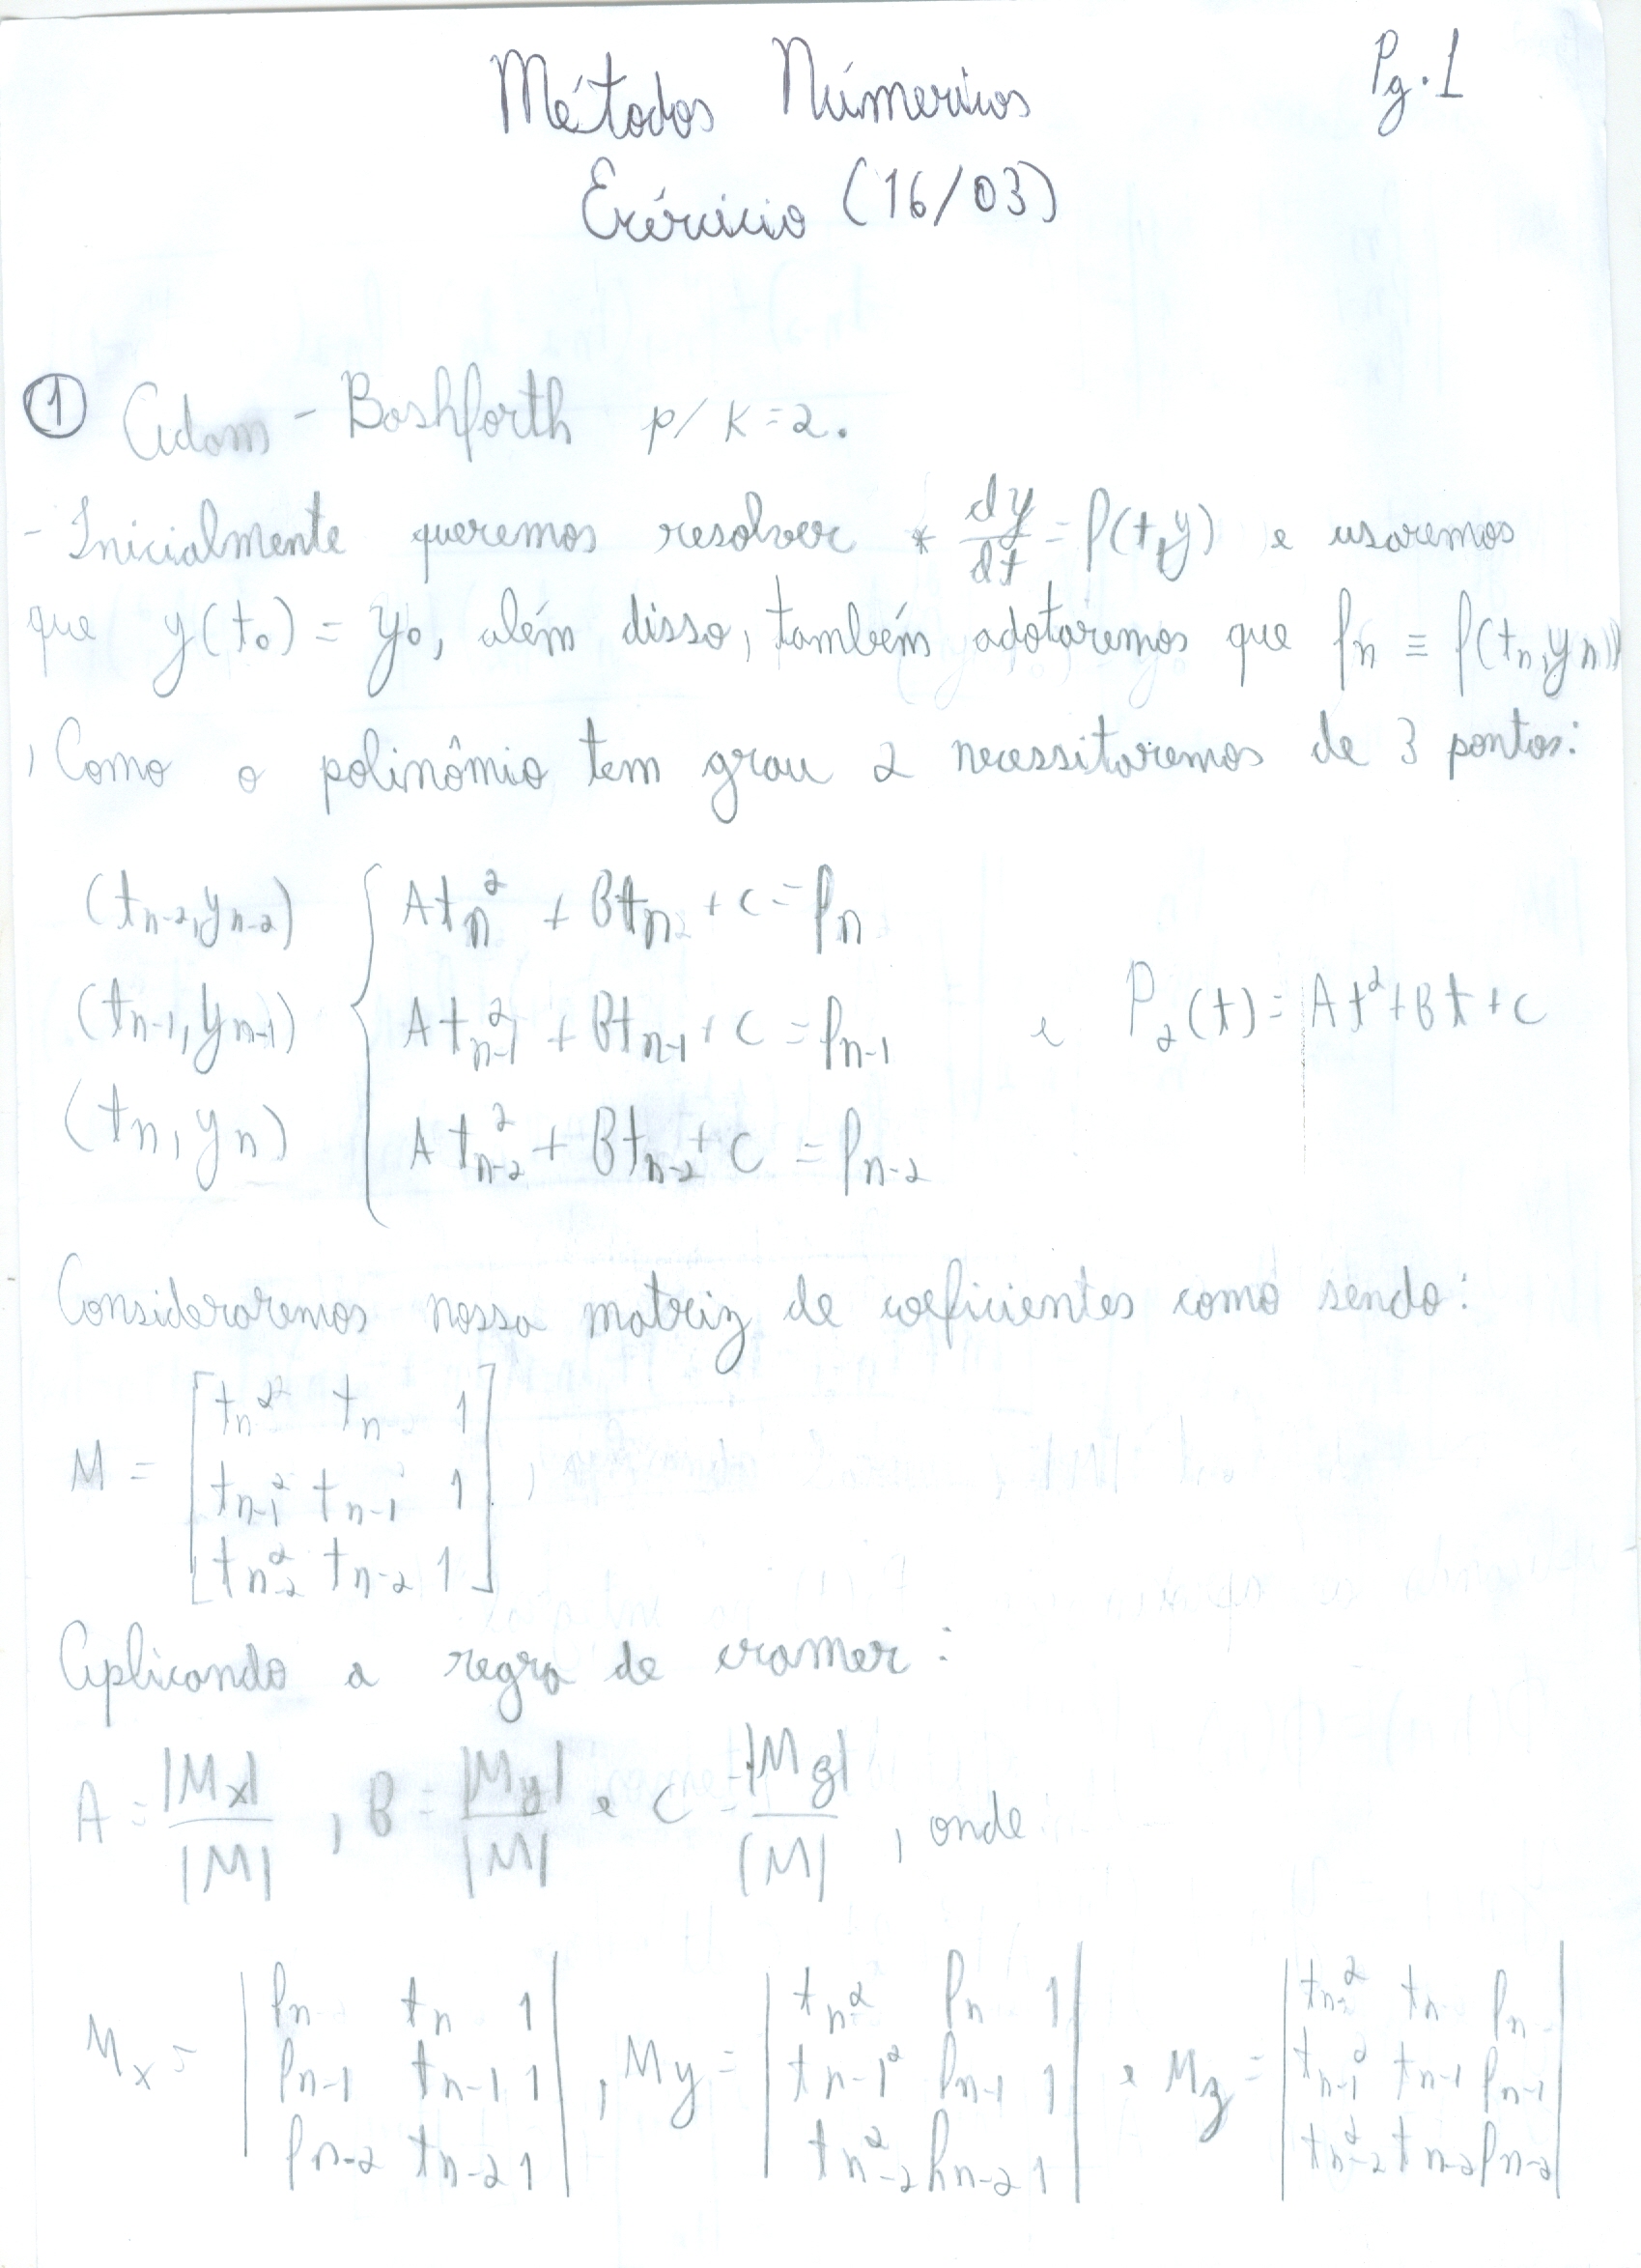 Pg.1
Métodos Númericos
Exércicio (16/03)
① Adam - Bashforth p/ K=2.
- Inicialmente queremos resolver * dy/dt = f(t,y) e usaremos
que y(t₀) = y₀, além disso, também adotaremos que fn ≡ f(tn,yn))
, Como o polinômio tem grau 2 necessitaremos de 3 pontos:
(tn-2,yn-2) { Atn² + Btn + C = fn
(tn-1,yn-1) Atn-1² + Btn-1 + C = fn-1 e P₂(t) = At²+Bt+C
(tn,yn) Atn-2² + Btn-2 + C = fn-2
Consideraremos nossa matriz de coeficientes como sendo:
M = [ tn² tn 1
tn-1² tn-1 1
tn-2² tn-2 1 ]
Aplicando a regra de cramer:
A = |Mx|/|M| , B = |My|/|M| e C = |Mz|/|M| , onde
Mx = | fn tn 1 | , My = | tn² fn 1 | e Mz = | tn² tn fn |
| fn-1 tn-1 1 | | tn-1² fn-1 1 | | tn-1² tn-1 fn-1 |
| fn-2 tn-2 1 | | tn-2² fn-2 1 | | tn-2² tn-2 fn-2 |